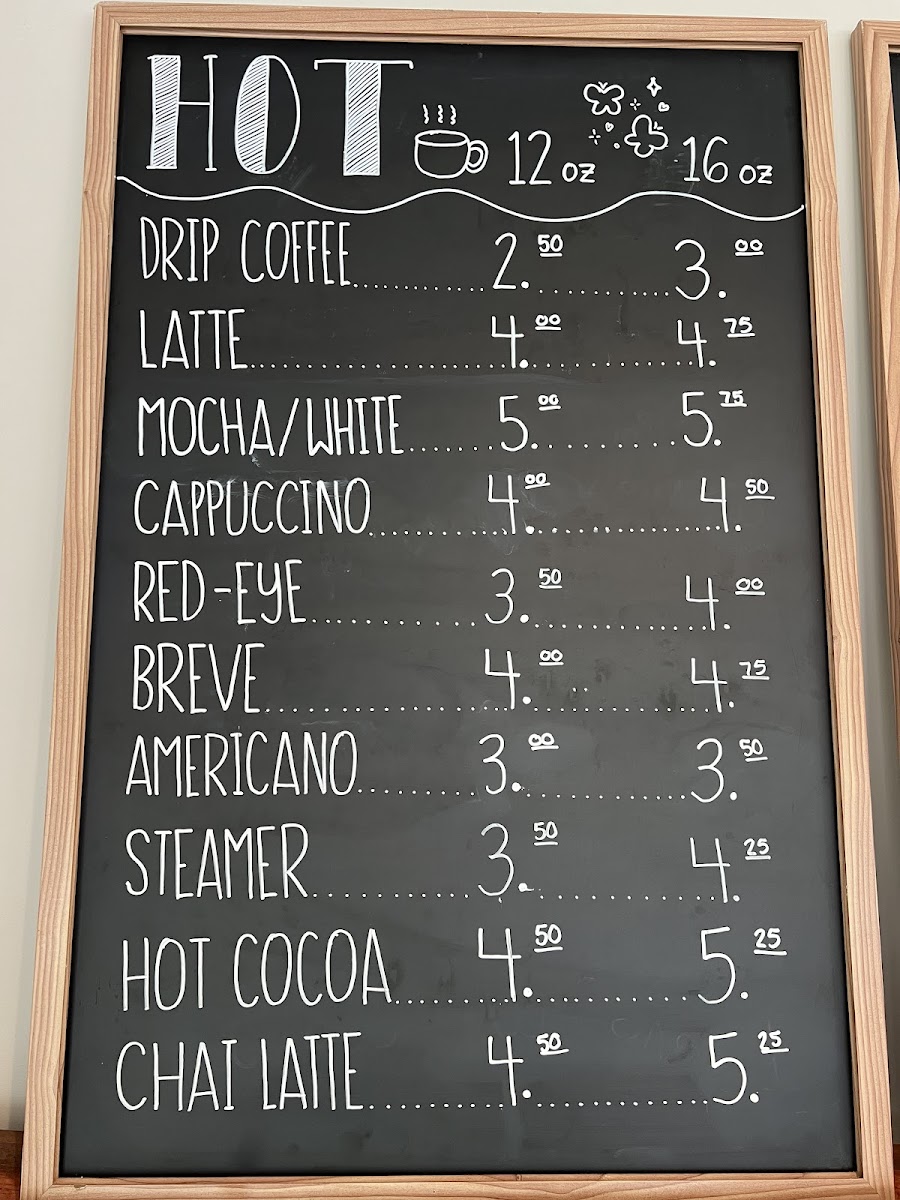 HOT 12 oz 16 oz
DRIP COFFEE..............2.50..........3.00
LATTE..............4.00..........4.75
MOCHA/WHITE.......5.00..........5.75
CAPPUCCINO..........4.00..........4.50
RED-EYE..............3.50..........4.00
BREVE..............4.00..........4.75
AMERICANO..........3.00..........3.50
STEAMER..............3.50..........4.25
HOT COCOA.........4.50..........5.25
CHAI LATTE..........4.50..........5.25